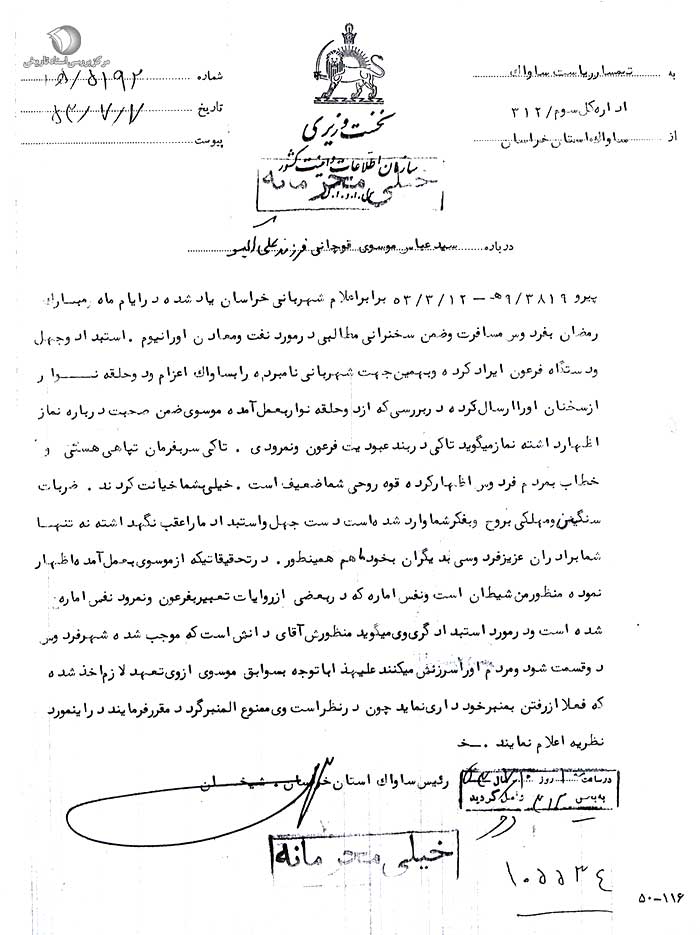 مرکز بررسی اسناد تاریخی
به تیمسار ریاست ساواک
اداره کل سوم/۳۱۲
از ساواک استان خراسان
نخست وزیری
سازمان اطلاعات و امنیت کشور
س.ا.و.ا.ک
شماره ۱۵/۵۱۹۲
تاریخ ۵۳/۷/۷
پیوست
خیلی محرمانه
درباره سید عباس موسوی قوچانی فرزند علی اکبر
پیرو ۹/۳۸۱۹ هـ – ۵۳/۳/۱۲ برابر اعلام شهربانی خراسان یاد شده در ایام ماه مبارک
رمضان بفردوس مسافرت وضمن سخنرانی مطالبی در مورد نفت ومعادن اورانیوم . استبداد وجهل
ودستگاه فرعون ایراد کرده وبهمین جهت شهربانی نامبرده را بساواک اعزام ودو حلقه نوار
از سخنان او را ارسال کرده در بررسی که از دو حلقه نوار بعمل آمده موسوی ضمن صحبت درباره نماز
اظهار داشته نماز میگوید تاکی در بند عبودیت فرعون ونمرودی . تاکی سر بفرمان تباهی هستی و
خطاب بمردم فردوس اظهار کرده قوه روحی شما ضعیف است . خیلی بشما خیانت کردند . ضربات
سنگین ومهلکی بروح وبفکر شما وارد شده است دست جهل واستبداد ما را عقب نگهداشته نه تنها
شما برادران عزیز فردوسی بدیگران بخود ما هم همینطور . در تحقیقاتیکه از موسوی بعمل آمده اظهار
نموده منظور من شیطان است ونفس اماره که در بعضی از روایات تعبیر بفرعون ونمرود نفس اماره
شده است ودر مورد استبداد گری وی میگوید منظورش آقای دانش است که موجب شده شهر فردوس
دو قسمت شود ومردم او را سرزنش میکنند علیهذا با توجه بسوابق موسوی از وی تعهد لازم اخذ شده
که فعلا از رفتن بمنبر خودداری نماید چون در نظر است وی ممنوع المنبر گردد مقرر فرمایند در اینمورد
نظریه اعلام نمایند . خ
رئیس ساواک استان خراسان . شیخان
در ساعت روز
به بخش ۳۱۲ واصل گردید
خیلی محرمانه
۱۰۵۵۳۴
۵۰-۱۱۶